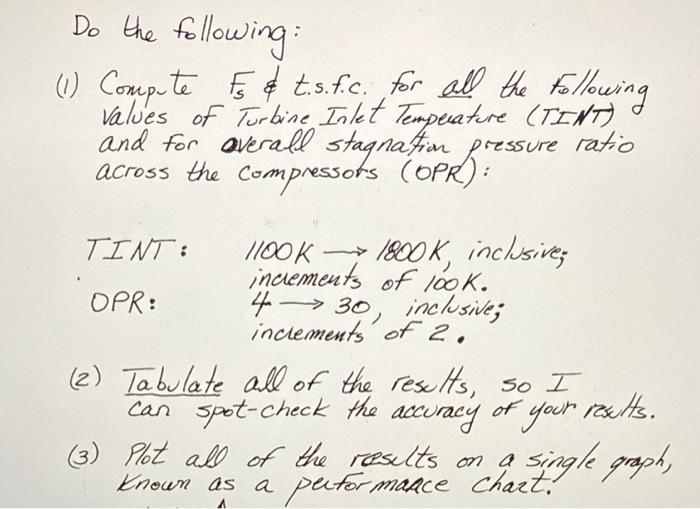 Do the following:
(1) Compute Fs & t.s.f.c. for all the following
values of Turbine Inlet Temperature (TINT)
and for overall stagnation pressure ratio
across the compressors (OPR):
TINT: 1100K → 1800K, inclusive;
increments of 100K.
OPR: 4 → 30, inclusive;
increments of 2.
(2) Tabulate all of the results, so I
can spot-check the accuracy of your results.
(3) Plot all of the results on a single graph,
known as a performance chart.